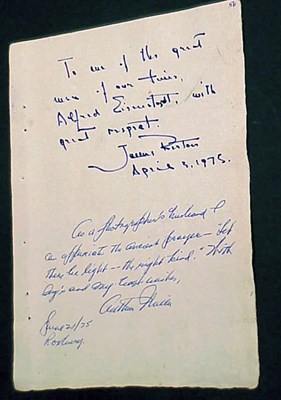 To one of the great
men of our times,
Alfred Eisenstaedt, with
great respect.
James Reston
April 3, 1975.
As a photographer's husband I
can appreciate the ancient prayer — "Let
there be light — the right kind." With
and warm wishes,
Arthur Miller
June 21/75
Roxbury